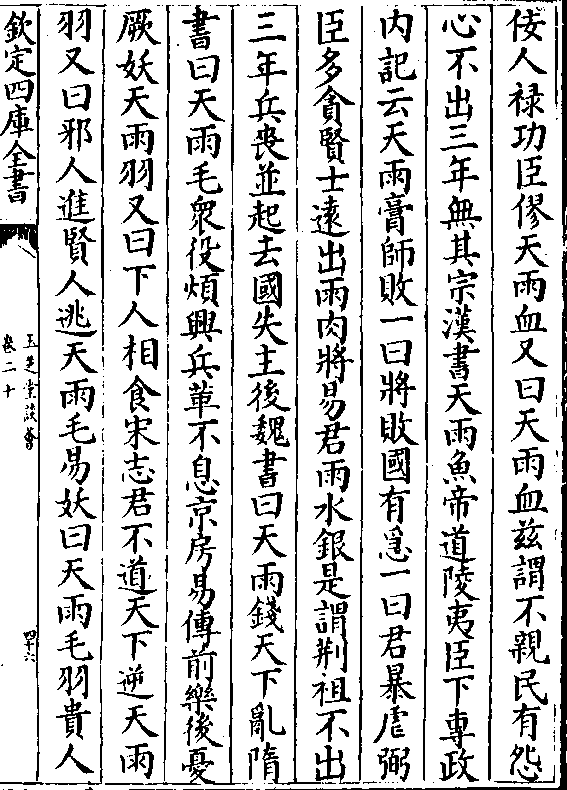 佞人禄功臣僇天雨血又曰天雨血兹謂不親民有怨
心不出三年無其宗漢書天雨魚帝道陵夷臣下專政
内記云天雨膏師敗一曰將敗國有憂一曰君暴虐弼
臣多貪賢士遠出雨肉將易君雨水銀是謂荆祖不出
三年兵喪並起去國失主後魏書曰天雨錢天下亂隋
書曰天雨毛衆役煩興兵革不息京房易傳前樂後憂
厥妖天雨羽又曰下人相食宋志君不道天下逆天雨
羽又曰邪人進賢人逃天雨毛易妖曰天雨毛羽貴人
欽定四庫全書
玉芝堂談薈
卷二十
四十六